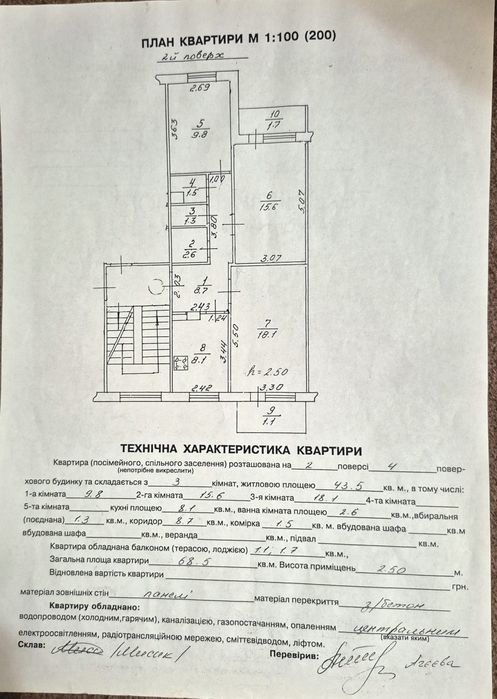 ПЛАН КВАРТИРИ М 1:100 (200)
2й поверх
2.69
3.63
5
9.8
10
1.7
4
1.5
1.00
6
15.6
5.07
3
1.3
3.80
2
2.6
3.07
2.03
1
8.7
2.43
1.24
5.50
7
18.1
8
8.1
3.44
h = 2.50
2.42
3.30
9
1.1
ТЕХНІЧНА ХАРАКТЕРИСТИКА КВАРТИРИ
Квартира (посімейного, спільного заселення) розташована на 2 поверсі 4 повер-
(непотрібне викреслити)
хового будинку та складається з 3 кімнат, житловою площею 43.5 кв. м., в тому числі:
1-а кімната 9.8 2-га кімната 15.6 3-я кімната 18.1 4-та кімната
5-та кімната кухні площею 8.1 кв.м, ванна кімната площею 2.6 кв.м.,вбиральня
(поєднана) 1.3 кв.м., коридор 8.7 кв.м., комірка 1.5 кв. м. вбудована шафа кв.м
вбудована шафа кв.м., веранда кв.м., підвал кв.м.
Квартира обладнана балконом (терасою, лоджією) 1.1, 1.7 кв.м.,
Загальна площа квартири 68.5 кв.м. Висота приміщень 2.50 м.
Відновлена вартість квартири грн.
матеріал зовнішніх стін панелі матеріал перекриття з/бетон
Квартиру обладнано:
водопроводом (холодним,гарячим), каналізацією, газопостачанням, опаленням центральним
(вказати яким)
електроосвітленням, радіотрансляційною мережею, сміттєвідводом, ліфтом.
Склав:
Перевірив: Агєєва